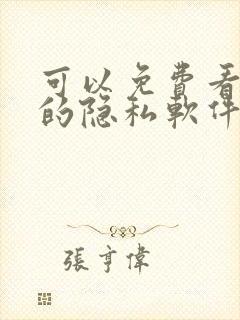 可以免費看
的隐私軟件
張亨偉